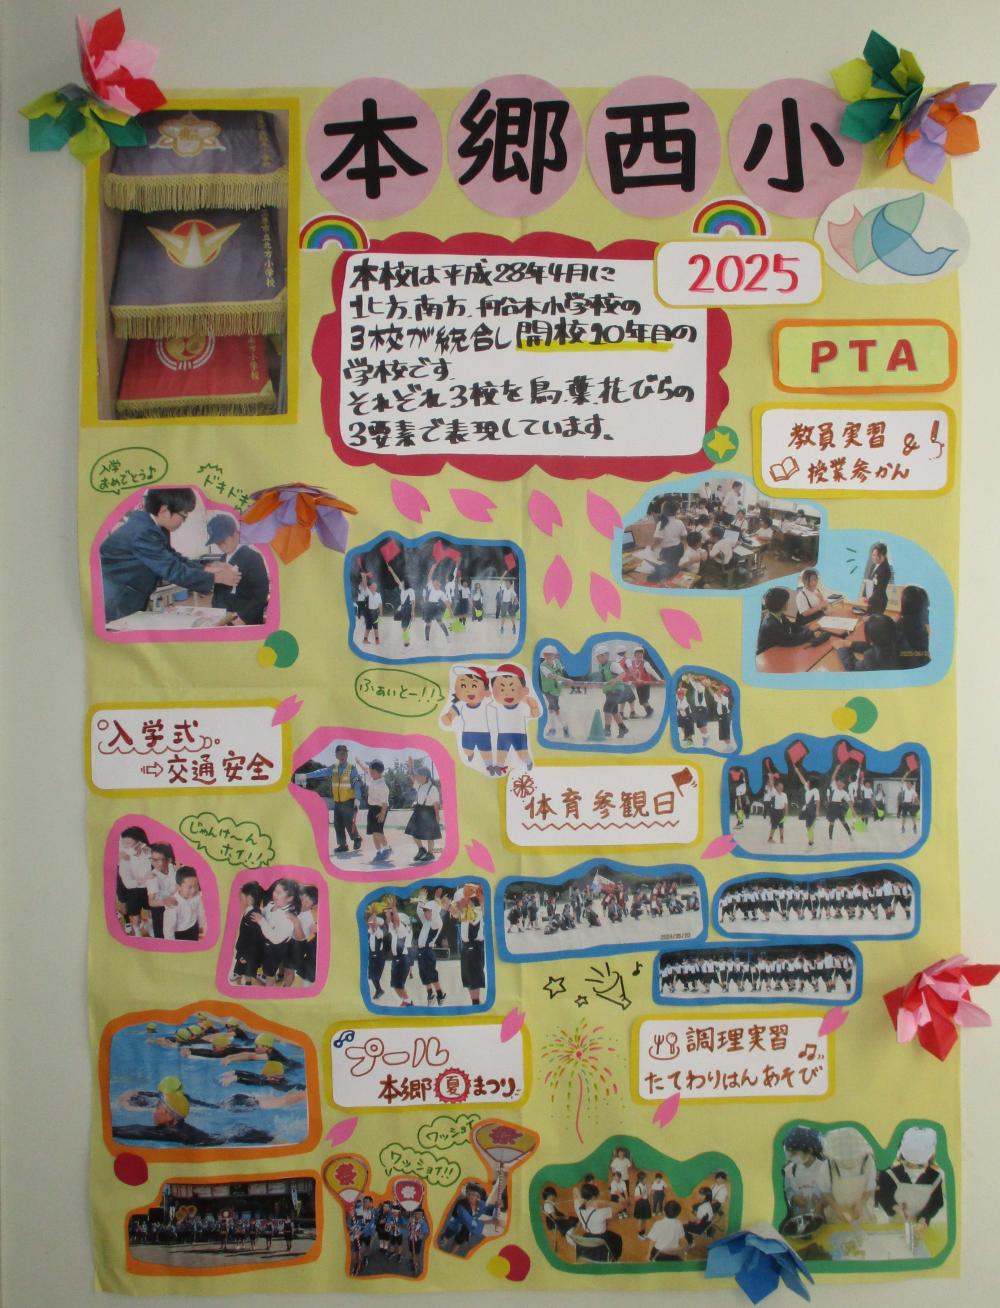 本郷西小
2025
本校は平成28年4月に
北方、南方、船木小学校の
3校が統合し開校10年目の
学校です
それぞれ3校を鳥、葉、花びらの
3要素で表現しています。
PTA
教員実習&
授業参かん
入学
おめでとう♪
ドキドキ
ふぁいとー!!
入学式
⇨交通安全
体育参観日
じゃんけ〜ん
ホイ!!
2024/05/20
プール
本郷夏まつり
調理実習♫
たてわりはんあそび
ワッショイ
ワッショイ!!
祭
祭
祭